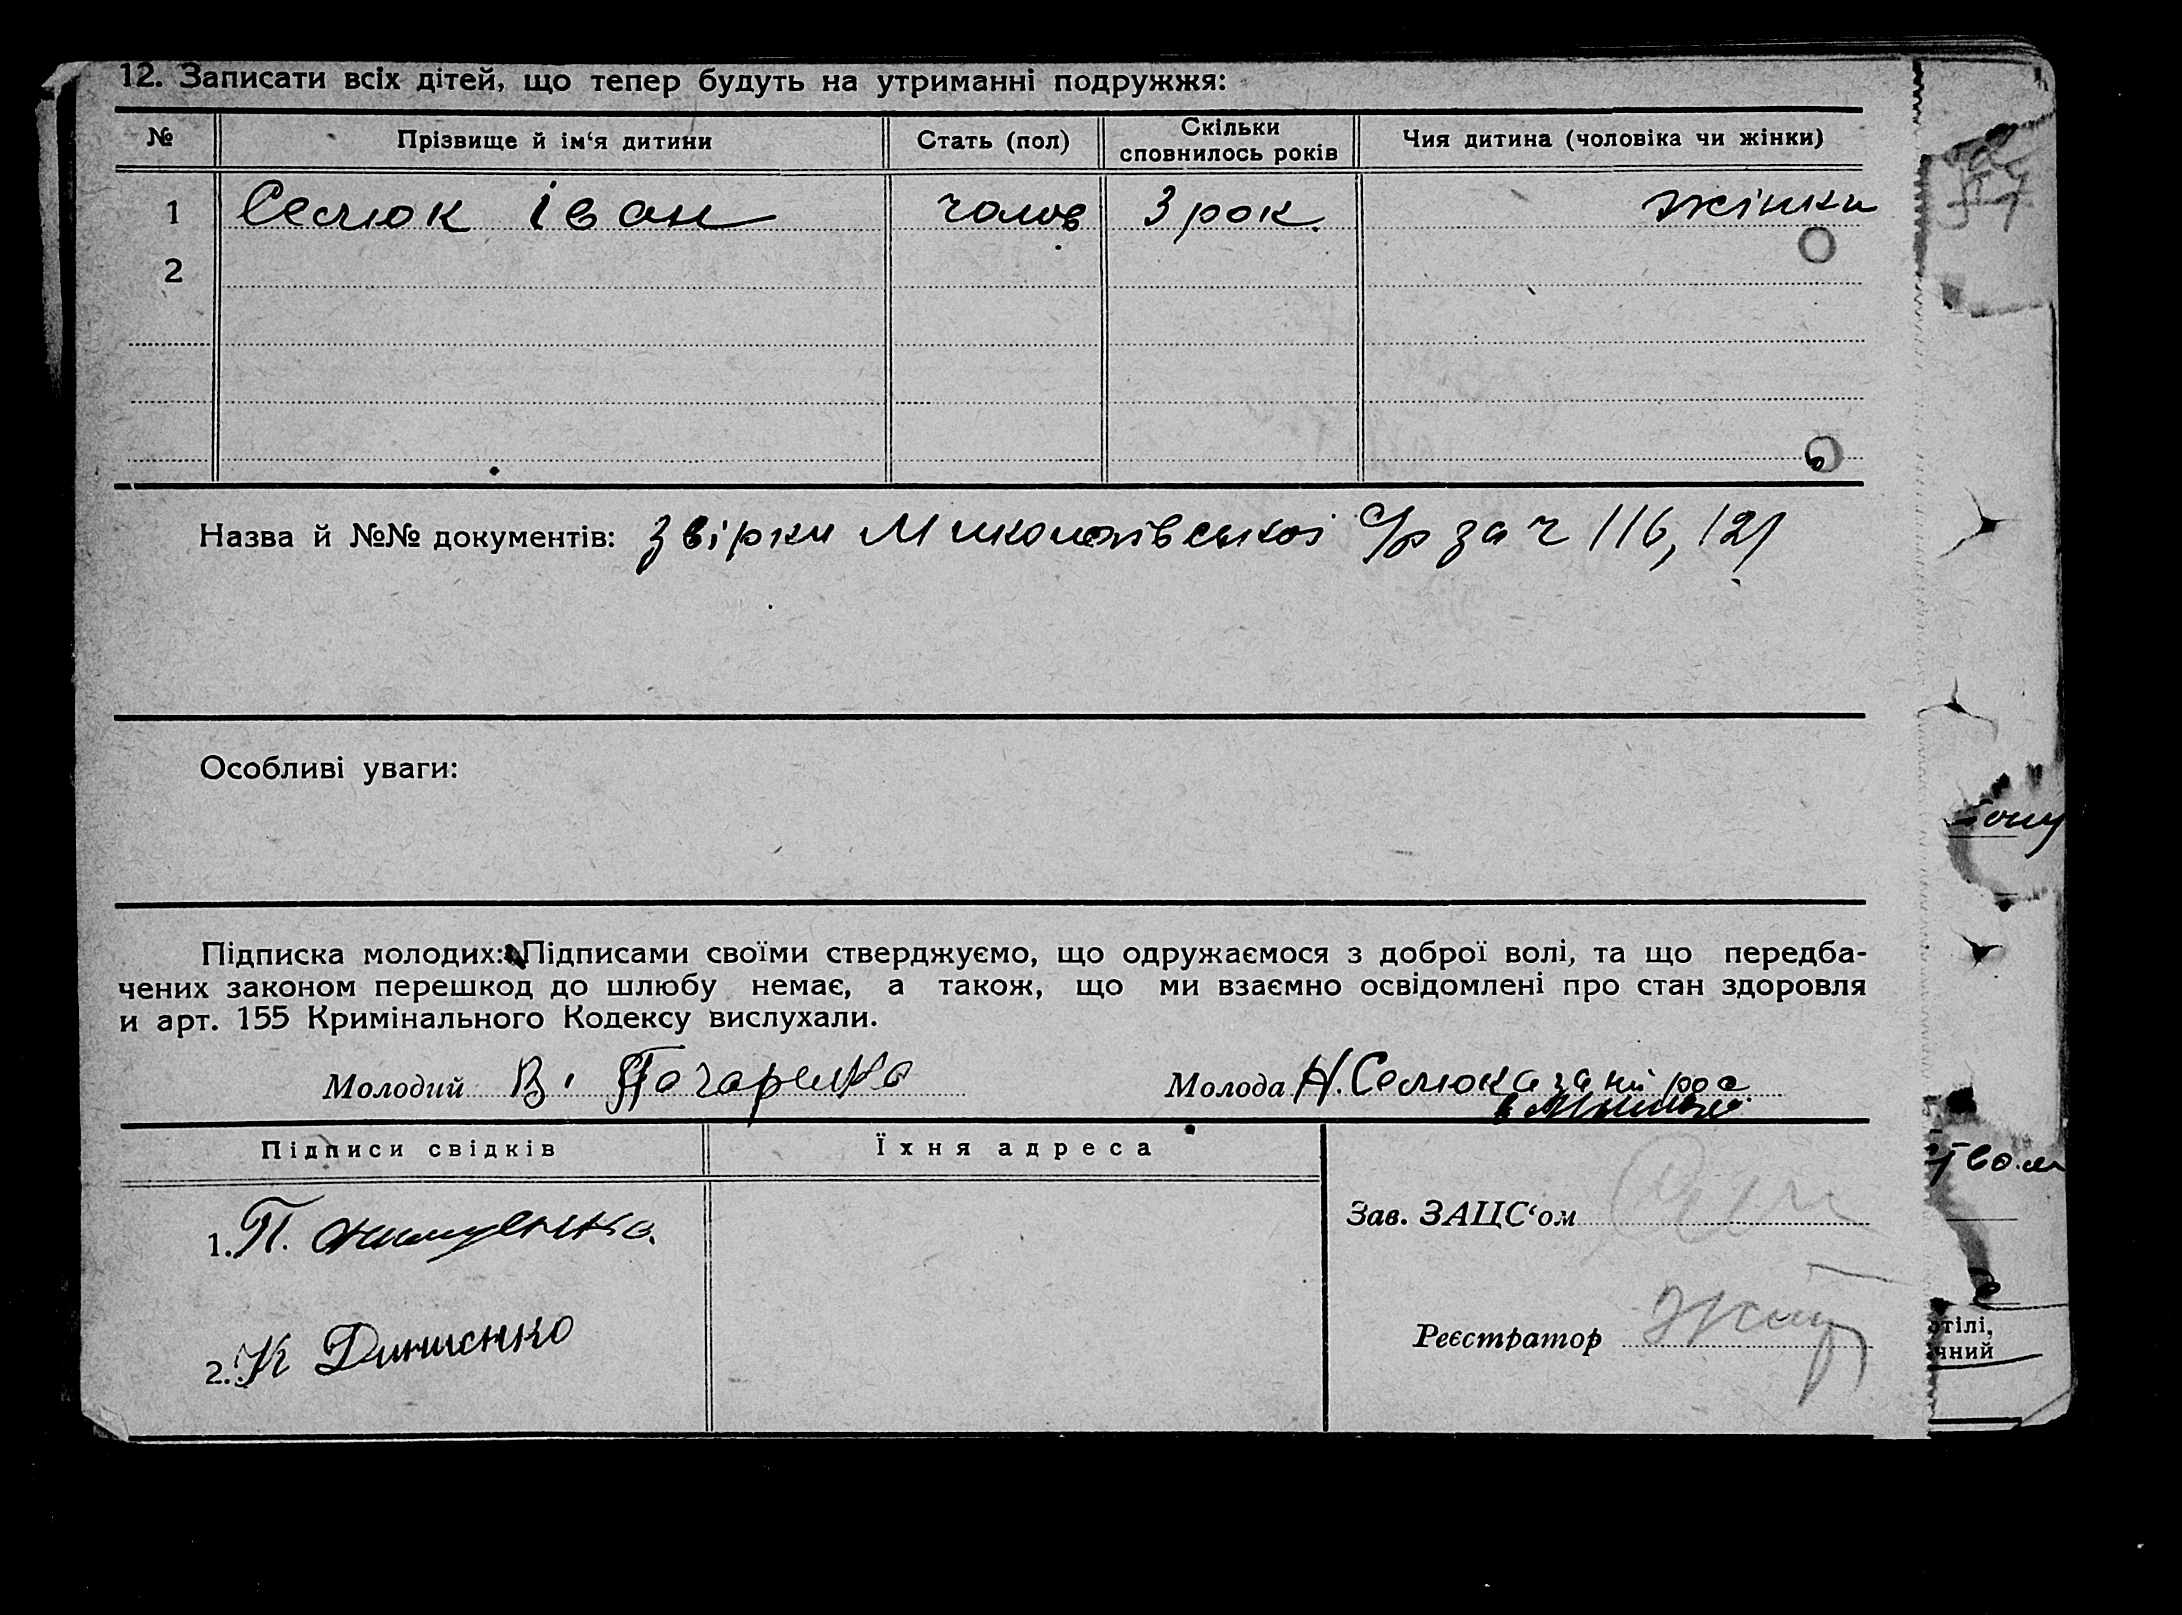 12. Записати всіх дітей, що тепер будуть на утриманні подружжя:
№ Прізвище й ім'я дитини Стать (пол) Скільки сповнилось років Чия дитина (чоловіка чи жінки)
1 Селюк Іван чолов 3 рок. жінки
2
Назва й №№ документів: звірки Миколаївської с/р за ч 116, 121
Особливі уваги:
Підписка молодих: Підписами своїми стверджуємо, що одружаємося з доброї волі, та що передба-
чених законом перешкод до шлюбу немає, а також, що ми взаємно освідомлені про стан здоровля
и арт. 155 Кримінального Кодексу вислухали.
Молодий В. Молода Н. Селюк а за нії рос
Підписи свідків Їхня адреса
1. П.
Зав. ЗАЦС'ом
2. К Динисенко
Реєстратор
отілі,
чний